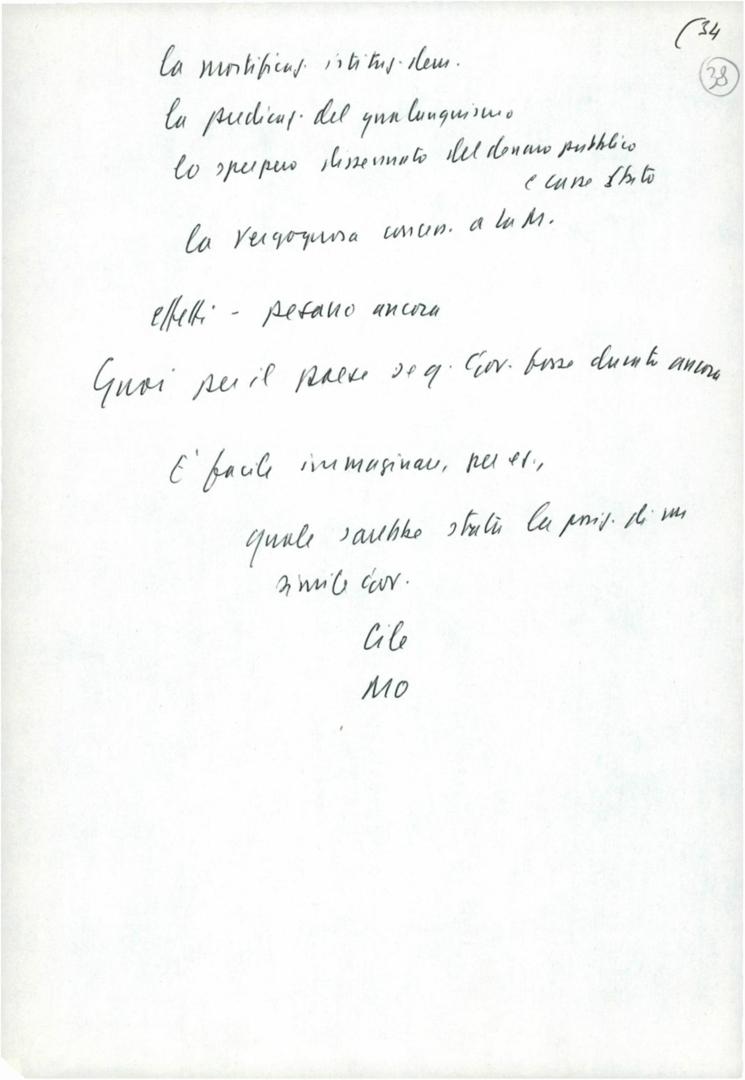 (34
38
la mortificaz. istituz. dem.
la predicaz. del qualunquismo
lo sperpero dissennato del denaro pubblico
e casse Stato
la vergognosa concess. a la M.
effetti - pesano ancora
Guai per il paese se q. Gov. fosse durato ancora
E' facile immaginare, per es.,
quale sarebbe stata la posiz. di un
simile Gov.
Cile
MO